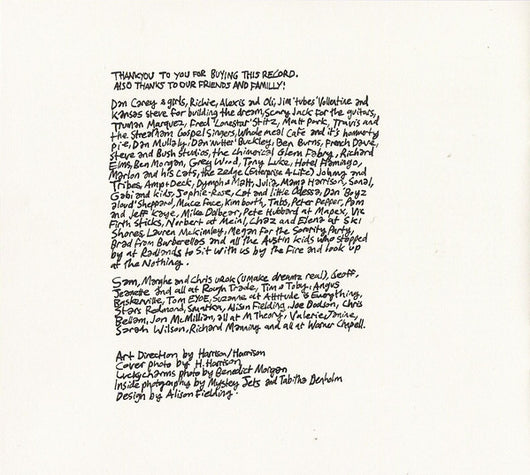 THANKYOU TO YOU FOR BUYING THIS RECORD.
ALSO THANKS TO OUR FRIENDS AND FAMILLY!
Dan Carey & girls, Richie, Alexis and Oli, Jim 'tubes' Valentine and
Kansas Steve for building the dream, Scary Jack for the guitars,
Truman Marquez, Fred 'Lonestar' Stitz, Matt Park, Travis and
the Streatham Gospel Singers, Wholemeal Cafe and it's homerty
pie, Dan Mullaly, Dan 'witter' Buckley, Ben Burns, French Dave,
Steve and Bush Studios, the chimerical Glenn Fabry, Richard
Elms, Ben Morgan, Greg Wood, Tony Luke, Hotel Flamingo,
Marlon and his Cats, the Zedge (Enterprise 4 Life) Johnny and
Tribes, Amps+Deck, Dympha Matt, Julia, Mama Harrison, Sonal,
Gabi and kids, Sophie-Rose, Cat and little Odessa, Dan 'Boyz
aloud' Sheppard, Mace Face, Kimboth, Tabs, Peter Pepper, Pam
and Jeff Kaye, Mike Dolbear, Pete Hubbard at Mapex, Vic
Firth Sticks, Norbert at Meinl, Chaz and Elena at Ski
Shores, Lauren McKinnley, Megan for the Sorority Party,
Brad from Barberellas and all the Austin kids who stopped
by at Radlands to Sit with us by the Fire and look up
at the Nothing.
Sam, Marghe and Chris uRok (Umake dreamz real), Geoff,
Jeanette and all at Rough Trade, Tim & Toby, Angus
Baskerville, Tom EXOE, Suzanne at Attitude is Everything,
Stars Redmond, Alison Fielding, Joe Dodson, Chris
Bellam, Jon McMillian, all at M Theory, Valerie, Janine,
Sarah Wilson, Richard Manning and all at Warner Chapell.
Art Direction by Harrison/Harrison
Cover photo by H. Harrison
Luckycharms photo by Benedict Morgan
Inside photography by Mystery Jets and Tabitha Denholm
Design by Alison Fielding.